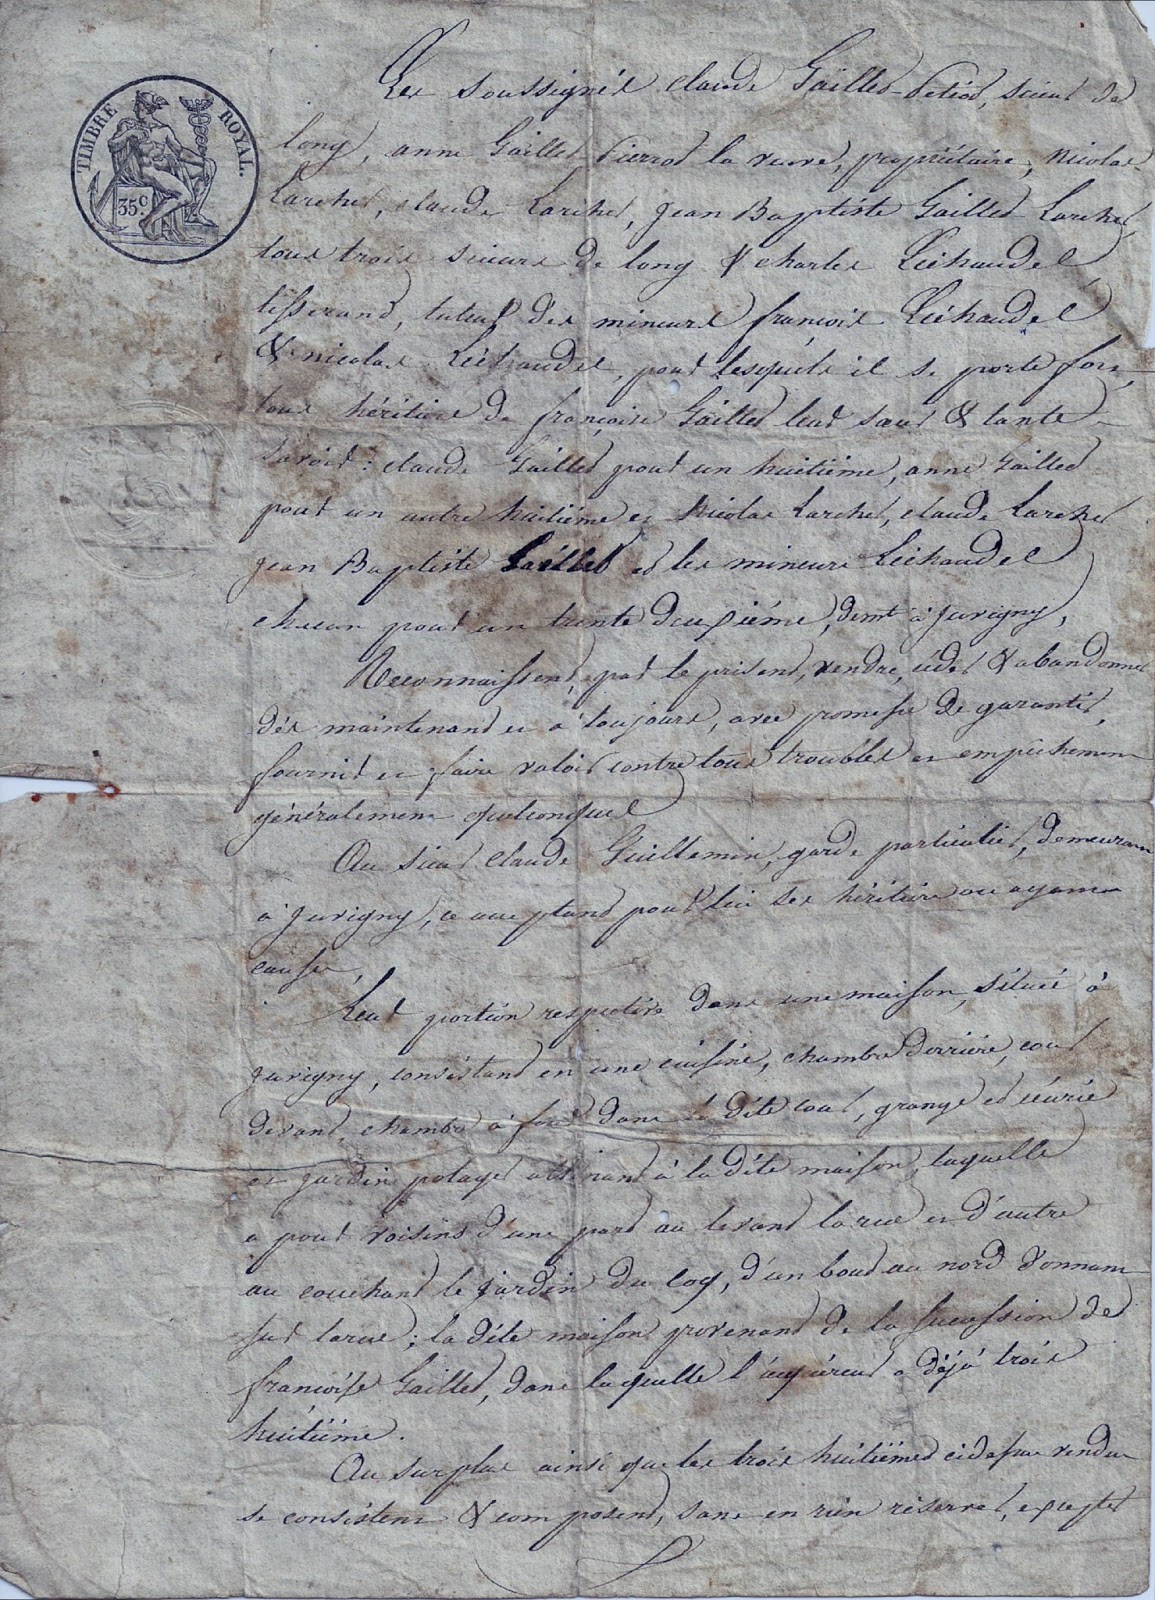 TIMBRE ROYAL.
35 c.
Les soussignés Claude Gaillet-Petiot, scieur de
long, anne Gaillet Pierrot la veuve, propriétaire, Nicolas
Larcher, claude Larcher, Jean Baptiste Gaillet Larcher
tous trois scieurs de long & charles Léchaudel
tisserand, tuteur des mineurs françois Léchaudel
& nicolas Léchaudel, pour lesquels il se porte fort,
tous héritiers de françoise Gaillet leur sœur & tante
savoir : claude Gaillet pour un huitième, anne Gaillet
pour un autre huitième et Nicolas Larcher, claude Larcher
Jean Baptiste Gaillet et les mineurs Léchaudel
chacun pour un trente deuxième, demt à Juvigny,
Reconnaissent, par le présent, vendre, céder & abandonner
dès maintenant et à toujours, avec promesse de garantir,
fournir et faire valoir contre tous troubles et empêchemens
généralement quelconques
Au sieur Claude Guillemin, garde particulier, demeurant
à Juvigny, ce acceptant pour lui ses héritiers ou ayans
cause,
Leur portion respective dans une maison, située à
Juvigny, consistant en une cuisine, chambre derrière, cour
devant, chambre à four dans la dite cour, grange et écurie
et jardin potager attenant à la dite maison, laquelle
a pour voisins d'une part au levant la rue et d'autre
au couchant le jardin du coq, d'un bout au nord donnant
sur la rue ; la dite maison provenant de la succession de
françoise Gaillet, dans laquelle l'acquéreur a déjà trois
huitième.
Au surplus ainsi que les trois huitièmes ci dessus vendus
se consistent & composent, sans en rien réserver, excepter